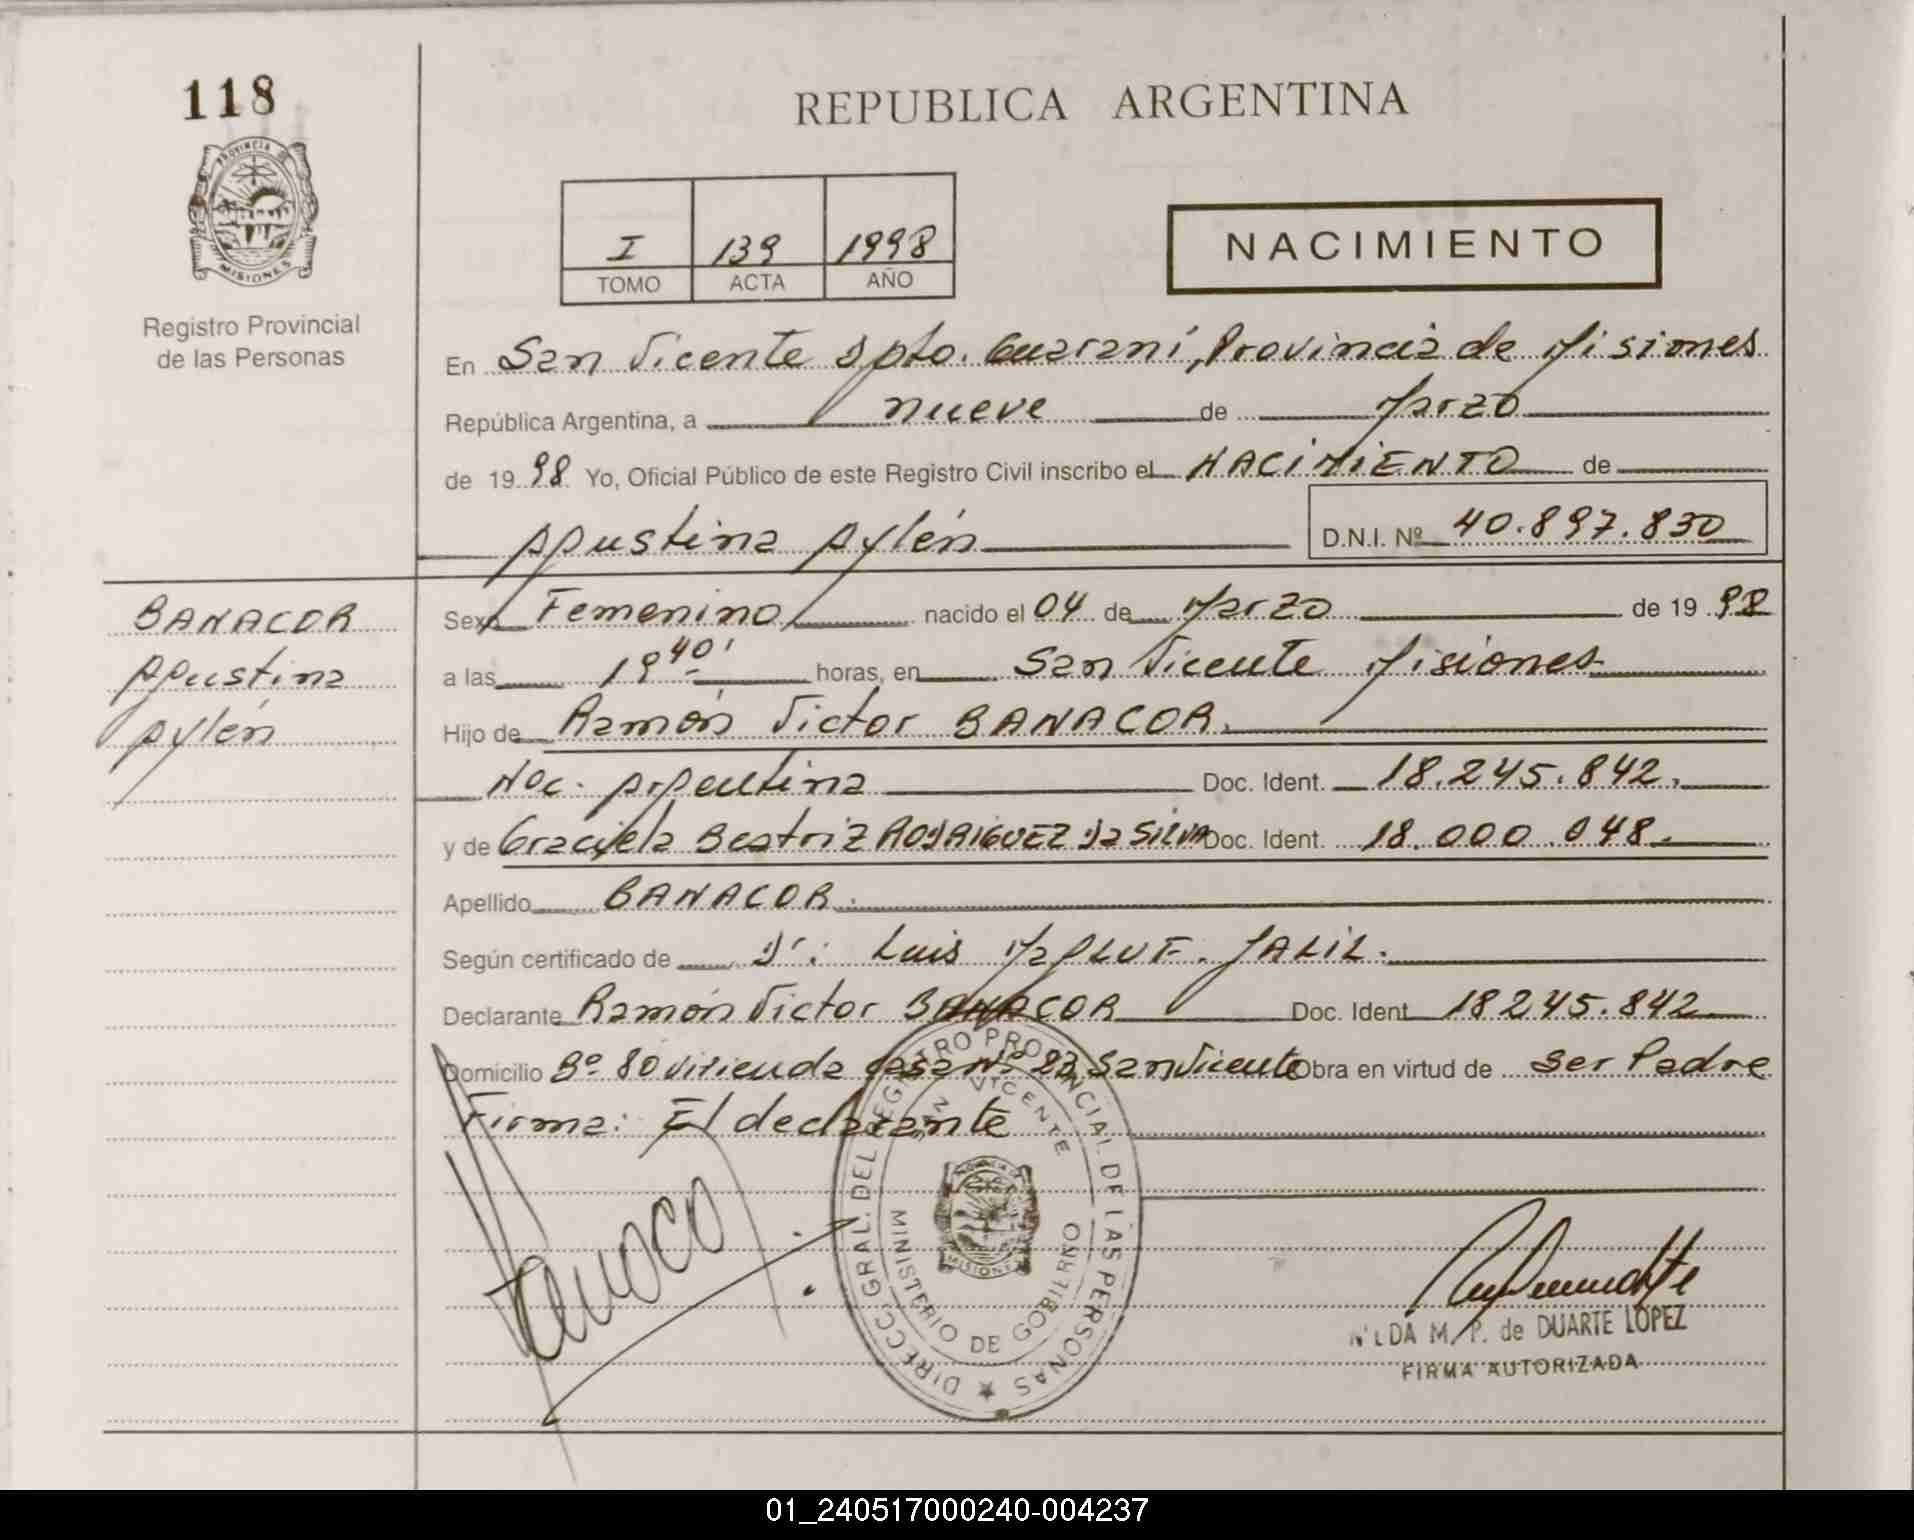 118
REPUBLICA ARGENTINA
PROVINCIA DE
MISIONES
Registro Provincial
de las Personas
I 139 1998
TOMO ACTA AÑO
NACIMIENTO
En San Vicente Dpto. Guaraní, Provincia de Misiones
República Argentina, a nueve de Marzo
de 1998 Yo, Oficial Público de este Registro Civil inscribo el NACIMIENTO de
Agustina Aylén D.N.I. Nº 40.897.830
BANACOR
Agustina
Aylén
Sexo Femenino nacido el 04 de Marzo de 1998
a las 19 40' horas, en San Vicente Misiones
Hijo de Ramón Victor BANACOR.
Nac. Argentina Doc. Ident. 18.245.842.
y de Graciela Beatriz RODRIGUEZ Da SILVA Doc. Ident. 18.000.048.
Apellido BANACOR.
Según certificado de Dr: Luis JALIL.
Declarante Ramón Victor BANACOR Doc. Ident 18245.842
Domicilio Bº 80 vivienda casa Nº 23 San Vicente Obra en virtud de Ser Padre
Firma: El declarante
DIRECC. GRAL. DEL REGISTRO PROVINCIAL DE LAS PERSONAS
SAN VICENTE
MISIONES
MINISTERIO DE GOBIERNO
M. P. de DUARTE LOPEZ
FIRMA AUTORIZADA
01_240517000240-004237